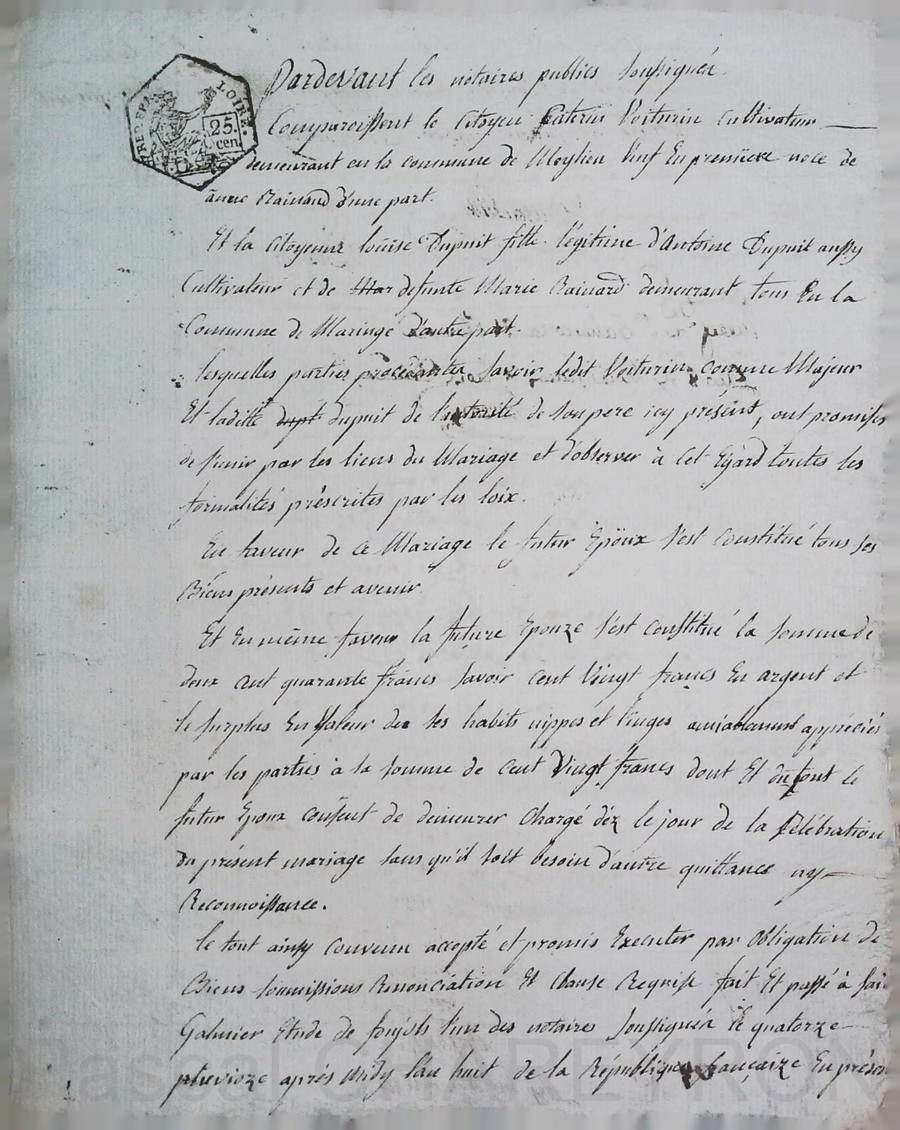 REP. FRA. LOIRE.
25. cen.
Pardevant les notaires publics soussignés.
Comparoissent le Citoyen Paterin Voiturin Cultivateur
demeurant en la commune de Meylieu Veuf En premiere noce de
anne Rainaud d'une part.
Et la Citoyenne louise Dupuit fille légitime d'Antoine Dupuit aussy
Cultivateur et de Mar defunte Marie Rainard demeurant tous En la
Commune de Maringe d'autre part.
lesquelles parties procédantes savoir ledit Voiturin comme Majeur
Et laditte dupt dupuit de l'autorité de son pere icy présent, ont promises
de s'unir par les liens du Mariage et d'observer à Cet Egard toutes les
formalités préscrites par les loix.
En faveur de ce Mariage le futur Epoux s'est Constitué tous ses
Biens présents et avenir
Et En même faveur la future Epouze s'est constitué la somme de
deux cent quarante francs savoir cent Vingt francs En argent et
le surplus En Valeur de ses habits nippes et linges amiablement appréciés
par les parties à la somme de cent Vingt francs dont Et du tout le
futur Epoux consent de demeurer Chargé déz le jour de la Célébration
du présent mariage sans qu'il soit besoin d'autre quittance ny
Reconnoissance.
le tout ainsy convenu accepté et promis Executer par obligation de
Biens soumissions Renonciation Et Clause Requise fait Et passé à sai
Galmier Etude de l'un des notaires soussignés le quatorze
pluvioze après midy l'an huit de la République francaize En présen
Pascal CHAREYRON